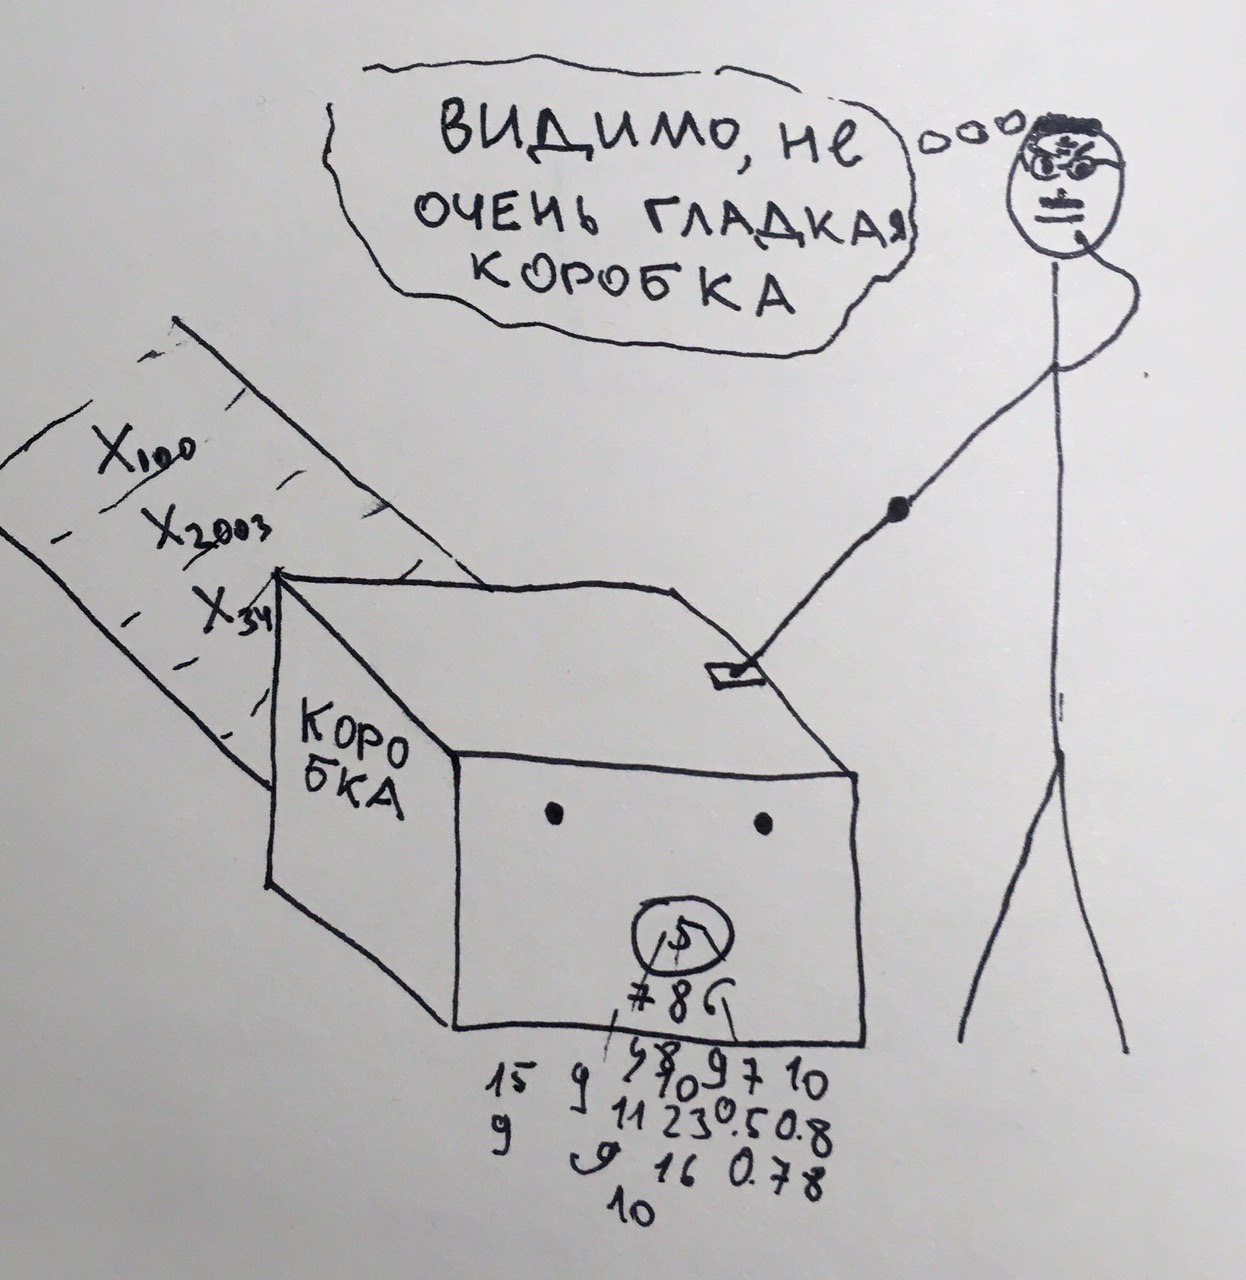 ВИДИМО, НЕ
ОЧЕНЬ ГЛАДКАЯ
КОРОБКА
X100
X2003
X34
КОРО
БКА
5
7 8 6
15 9 5 8 9 7 10
10
9 11 23 0.5 0.8
9 16 0.78
10